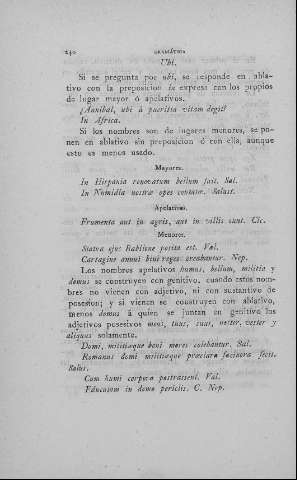 240 GRAMÁTICA
Ubi.
Si se pregunta por ubi, se responde en abla-
tivo con la preposicion in expresa con los propios
de lugar mayor ó apelativos.
¿Annibal, ubi à pueritia vitam degit?
In Africa.
Si los nombres son de lugares menores, se po-
nen en ablativo sin preposicion ó con ella, aunque
esto es menos usado.
Mayores.
In Hispania renovatum bellum fuit. Sal.
In Numidia nostræ opes Salust.
Apelativos.
Frumenta aut in agris, aut in villis sunt. Cic.
Menores.
Statua ejus Babilone posita est. Val.
Cartagine annui bini reges creabantur. Nep.
Los nombres apelativos humus, bellum, militia y
domus se construyen con genitivo, cuando estos nom-
bres no vienen con adjetivo, ni con sustantivo de
posesion; y si vienen se construyen con ablativo,
menos domus á quien se juntan en genitivo los
adjetivos posesivos meus, tuus, suus, noster, vester y
alienus solamente.
Domi, militiæque boni mores colebantur. Sal.
Romanus domi militiæque præclara facinora fecit.
Salus.
Cum humi corpora postrassent. Val.
Educatum in domo periclis. C. Nep.